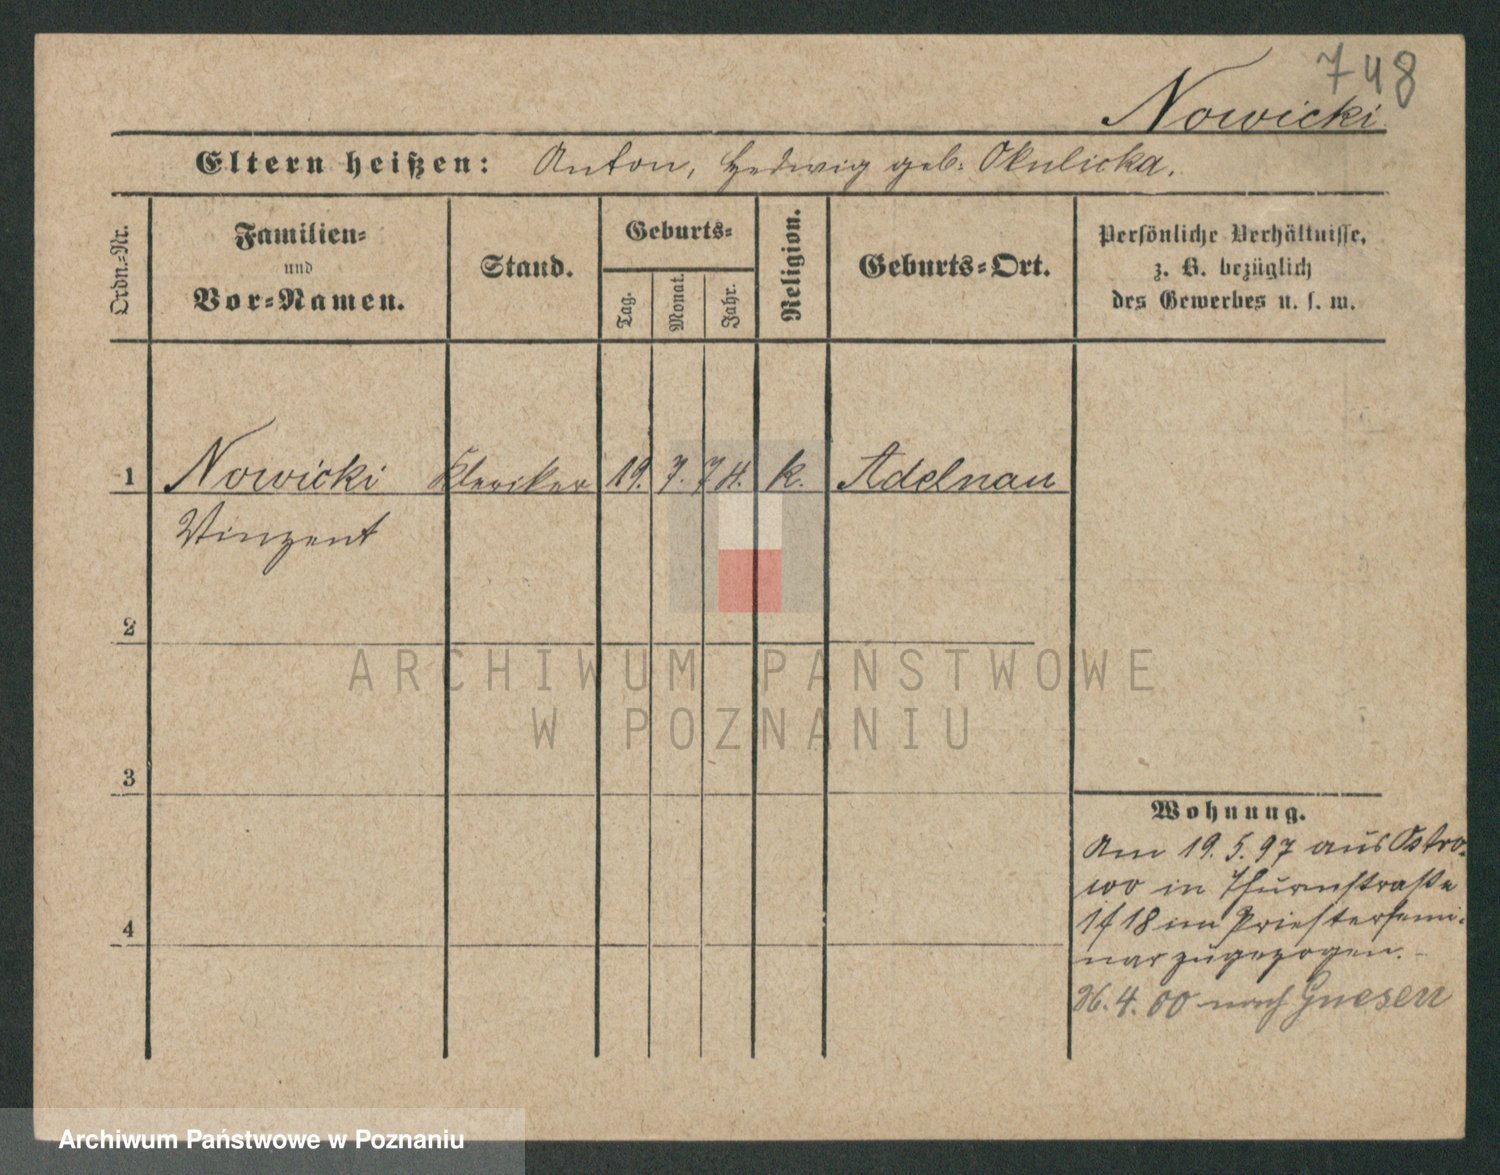 748
Nowicki
Eltern heißen: Anton, Hedwig geb. Okulicka.
Ordn.-Nr.
Familien-
und
Vor-Namen.
Stand.
Geburts-
Tag.
Monat.
Jahr.
Religion.
Geburts-Ort.
Persönliche Verhältnisse,
z. B. bezüglich
des Gewerbes u. s. w.
1 Nowicki Kleriker 19. 7. 74. k. Adelnau
Vinzent
2
3
4
Wohnung.
Am 19. 5. 97 aus Ostro-
wo in Thurmstraße
17/18 im Priestersemi-
nar zugezogen.
4. 00 nach Gnesen
ARCHIWUM PAŃSTWOWE
W POZNANIU
Archiwum Państwowe w Poznaniu